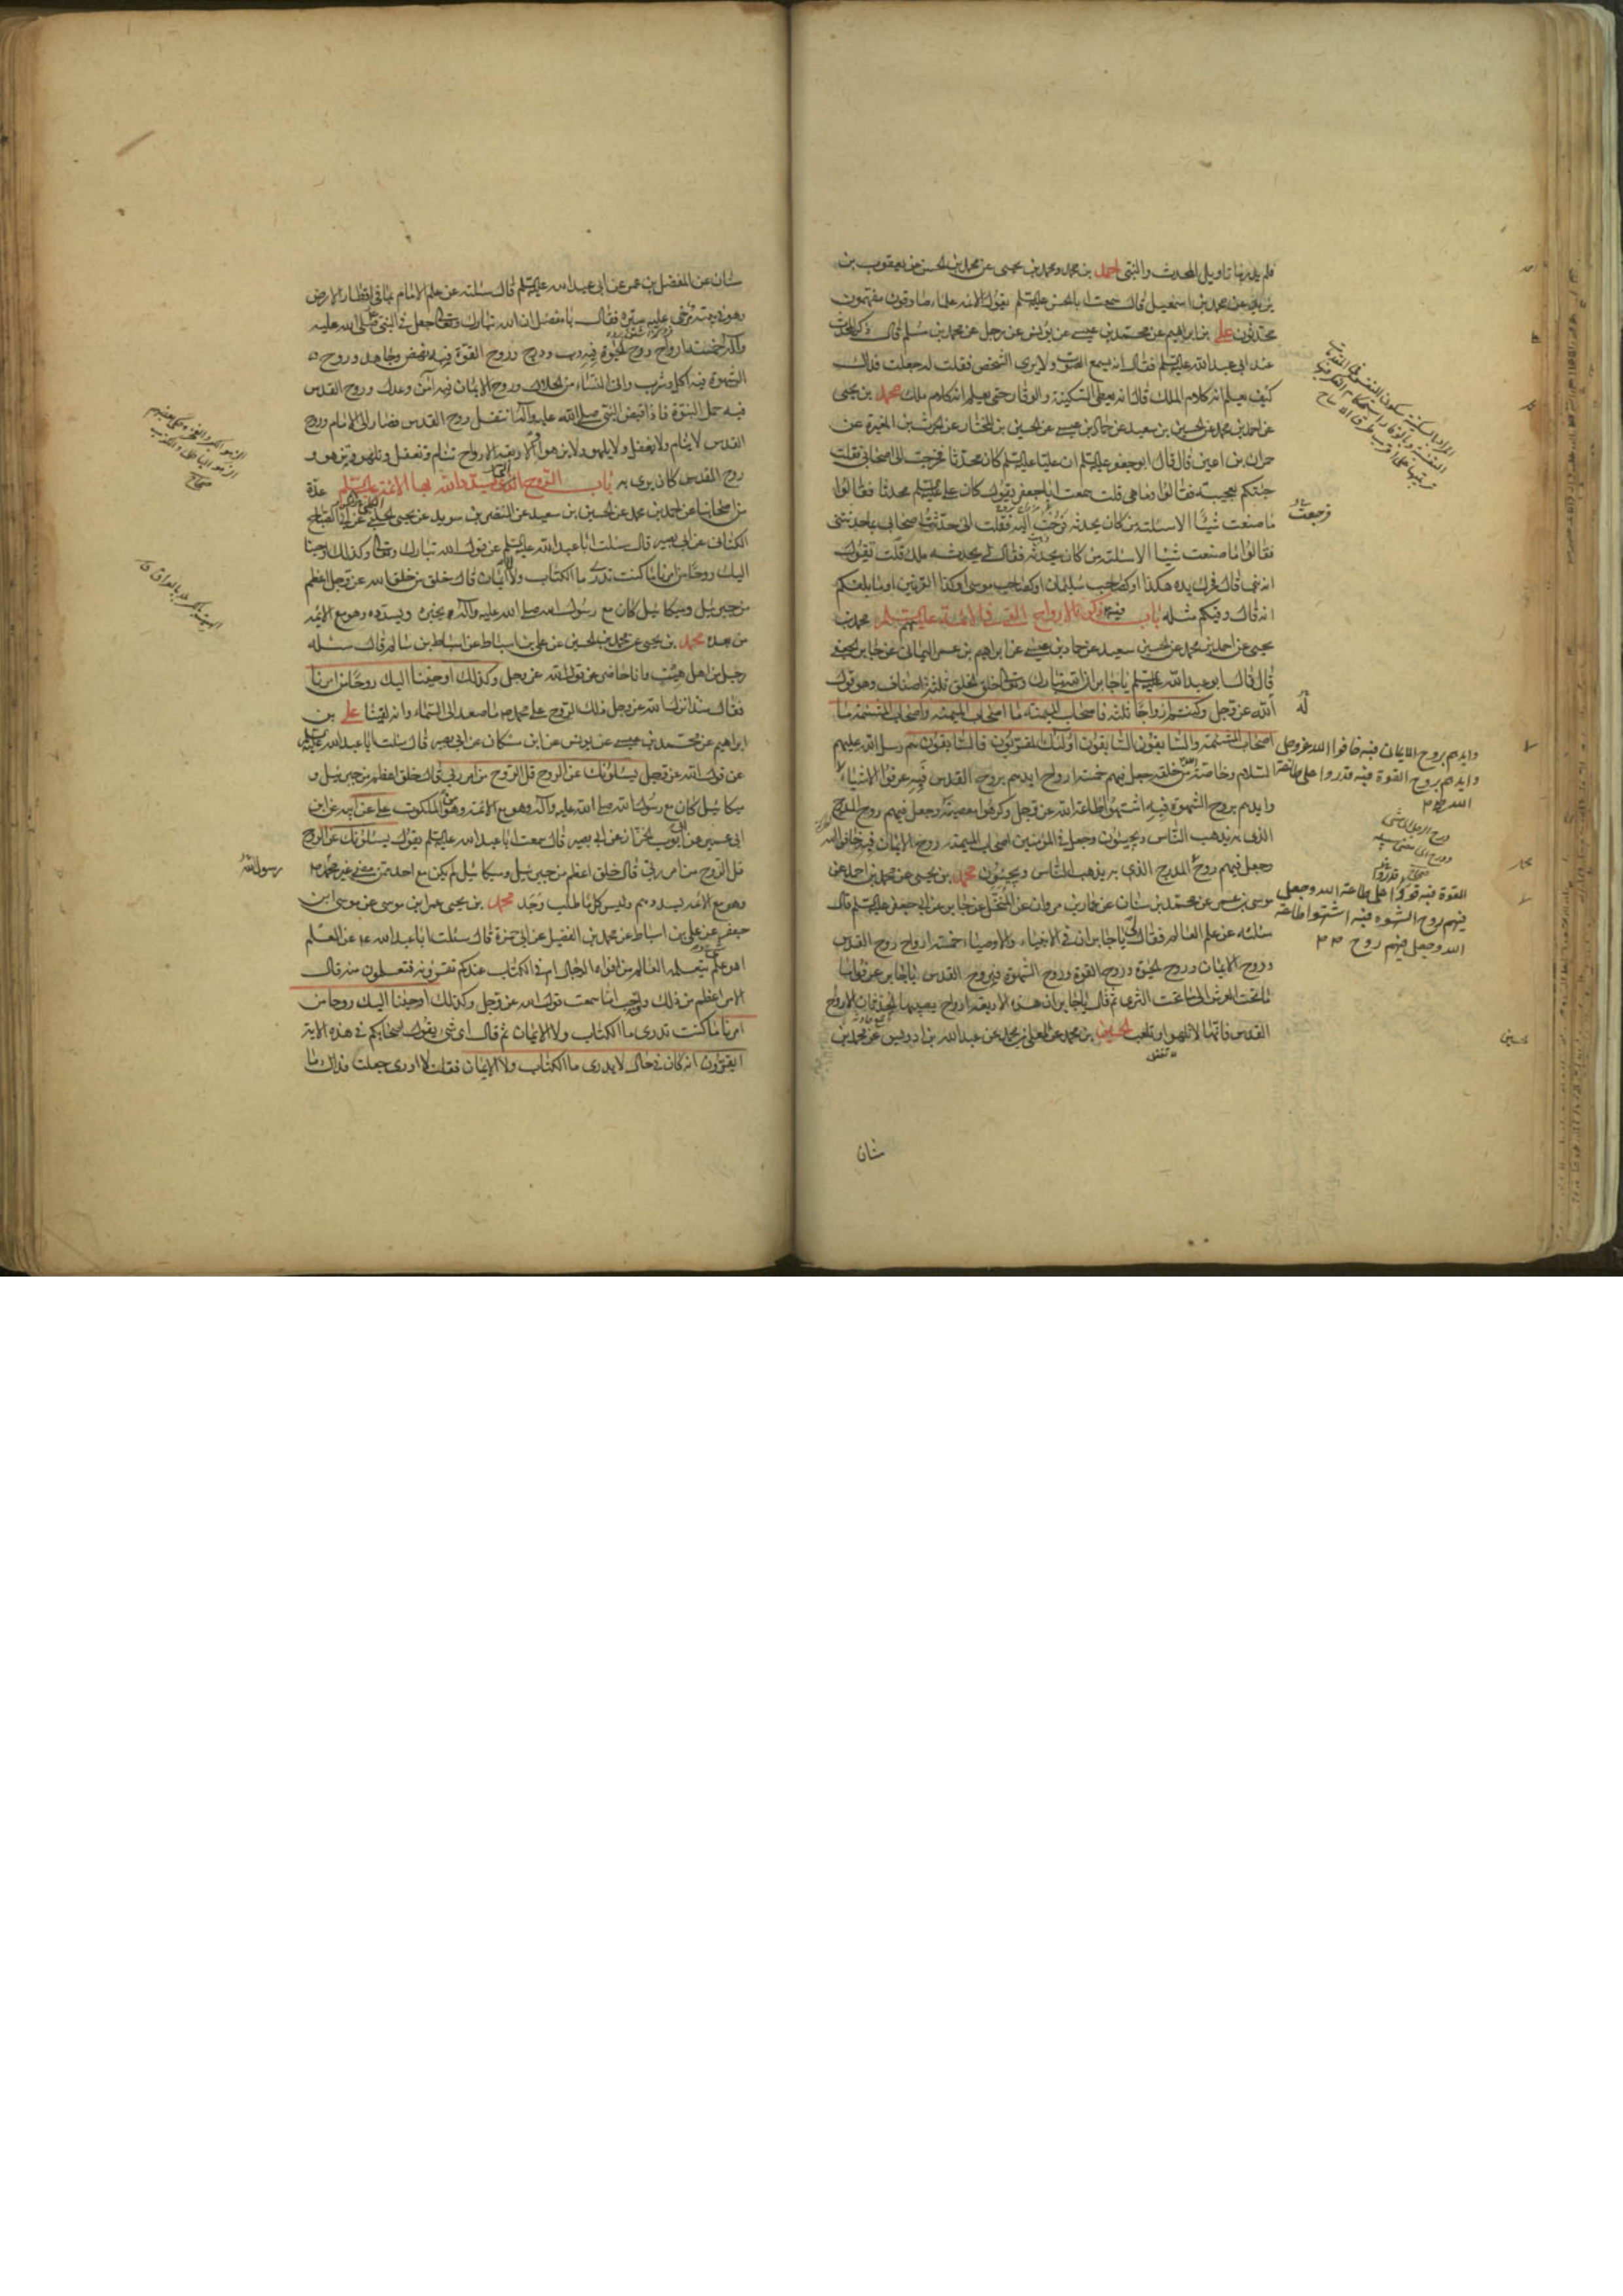 فلم يدر ما تاويل المحدث والنبي احمد بن محمد ومحمد بن يحيى عن محمد بن الحسن عن يعقوب بن
يزيد عن محمد بن اسمعيل قال سمعت ابا الحسن عليه السلم يقول الائمة علماء صادقون مفهمون
محدثون علي بن ابراهيم عن محمد بن عيسى عن يونس عن رجل عن محمد بن مسلم قال ذكر المحدث
عند ابي عبد الله عليه السلم فقال انه يسمع الصوت ولا يرى الشخص فقلت له جعلت فداك
كيف يعلم انه كلام الملك قال انه يعطى السكينة والوقار حتى يعلم انه كلام ملك محمد بن يحيى
عن احمد بن محمد عن الحسين بن سعيد عن حماد بن عيسى عن الحسين بن المختار عن الحرث بن المغيرة عن
حمران بن اعين قال قال ابو جعفر عليه السلم ان عليا عليه السلم كان محدثا فخرجت الى اصحابي فقلت
جئتكم بعجيبة فقالوا وما هي قلت سمعت ابا جعفر يقول كان علي عليه السلم محدثا فقالوا
ما صنعت شيئا الا سالته من كان يحدثه فرجعت اليه فقلت اني حدثت اصحابي بما حدثتني
فقالوا ما صنعت شيئا الا سئلته من كان يحدثه فقال لي يحدثه ملك قلت تقول
انه نبي قال فحرك يده هكذا او كصاحب سليمان او كصاحب موسى او كذا القرنين او ما بلغكم
انه قال وفيكم مثله باب فيه ذكر الارواح التي في الائمة عليهم السلم محمد بن
يحيى عن احمد بن محمد عن الحسين بن سعيد عن حماد بن عيسى عن ابراهيم بن عمر اليماني عن جابر الجعفي
قال قال ابو عبد الله عليه السلم يا جابر ان الله تبارك وتعالى خلق الخلق ثلثة اصناف وهو قول
الله عز وجل وكنتم ازواجا ثلثة فاصحاب الميمنة ما اصحاب الميمنة واصحاب المشئمة ما
اصحاب المشئمة والسابقون السابقون اولئك المقربون فالسابقون هم رسل الله عليهم
السلام وخاصة الله من خلقه جعل فيهم خمسة ارواح ايدهم بروح القدس فبه عرفوا الاشياء
وايدهم بروح الشهوة فبه اشتهوا طاعة الله عز وجل وكرهوا معصيته وجعل فيهم روح المدرج
الذي به يذهب الناس ويجيئون وجعل في المؤمنين اصحاب الميمنة روح الايمان فبه خافوا الله
وجعل فيهم روح المدرج الذي به يذهب الناس ويجيئون محمد بن يحيى عن محمد بن احمد عن
موسى بن عمر عن محمد بن سنان عن عمار بن مروان عن المنخل عن جابر عن ابي جعفر عليه السلم قال
سئلته عن علم العالم فقال لي يا جابر ان في الانبياء والاوصياء خمسة ارواح روح القدس
وروح الايمان وروح الحيوة وروح القوة وروح الشهوة فبروح القدس يا جابر عرفوا ما
ما تحت العرش الى ما تحت الثرى ثم قال يا جابر ان هذه الاربعة ارواح يصيبها الحدثان الا روح
القدس فانها لا تلهو ولا تلعب الحسين بن محمد عن المعلى بن محمد عن عبد الله بن ادريس عن محمد بن
سنان
فرجعت
وايدهم بروح الايمان فبه خافوا الله عز وجل
وايدهم بروح القوة فبه قدروا على طاعة
الله
القوة فبه قووا على طاعة الله وجعل
فيهم روح الشهوة فبه اشتهوا طاعة
الله وجعل فيهم روح
سنان عن المفضل بن عمر عن ابي عبد الله عليه السلم قال سئلته عن علم الامام بما في اقطار الارض
وهو في بيته مرخى عليه ستره فقال يا مفضل ان الله تبارك وتعالى جعل في النبي صلى الله عليه
وآله خمسة ارواح روح الحيوة فبه دب ودرج وروح القوة فبه نهض وجاهد وروح
الشهوة فبه اكل وشرب واتى النساء من الحلال وروح الايمان فبه آمن وعدل وروح القدس
فبه حمل النبوة فاذا قبض النبي صلى الله عليه وآله انتقل روح القدس فصار الى الامام وروح
القدس لا ينام ولا يغفل ولا يلهو ولا يزهو والاربعة الارواح تنام وتغفل وتلهو وتزهو و
روح القدس كان يرى به باب الروح التي يسدد الله بها الائمة عليهم السلم عدة
من اصحابنا عن احمد بن محمد عن الحسين بن سعيد عن النضر بن سويد عن يحيى الحلبي عن ابي الصباح
الكناني عن ابي بصير قال سئلت ابا عبد الله عليه السلم عن قول الله تبارك وتعالى وكذلك اوحينا
اليك روحا من امرنا ما كنت تدري ما الكتاب ولا الايمان قال خلق من خلق الله عز وجل اعظم
من جبرئيل وميكائيل كان مع رسول الله صلى الله عليه وآله يخبره ويسدده وهو مع الائمة
من بعده محمد بن يحيى عن محمد بن الحسين عن علي بن اسباط عن اسباط بن سالم قال سئله
رجل من اهل هيت وانا حاضر عن قول الله عز وجل وكذلك اوحينا اليك روحا من امرنا
فقال منذ انزل الله عز وجل ذلك الروح على محمد ص ما صعد الى السماء وانه لفينا علي بن
ابراهيم عن محمد بن عيسى عن يونس عن ابن مسكان عن ابي بصير قال سئلت ابا عبد الله عليه السلم
عن قول الله عز وجل يسئلونك عن الروح قل الروح من امر ربي قال خلق اعظم من جبرئيل و
ميكائيل كان مع رسول الله صلى الله عليه وآله وهو مع الائمة وهو من الملكوت علي عن ابيه عن ابن
ابي عمير عن ابي ايوب الخزاز عن ابي بصير قال سمعت ابا عبد الله عليه السلم يقول يسئلونك عن الروح
قل الروح من امر ربي قال خلق اعظم من جبرئيل وميكائيل لم يكن مع احد ممن مضى غير محمد
وهو مع الائمة يسددهم وليس كل ما طلب وجد محمد بن يحيى عن عمران بن موسى عن موسى بن
جعفر عن علي بن اسباط عن محمد بن الفضيل عن ابي حمزة قال سئلت ابا عبد الله ع عن العلم
اهو علم يتعلمه العالم من افواه الرجال ام في الكتاب عندكم تقرؤنه فتعلمون منه قال
الامر اعظم من ذلك واوجب اما سمعت قول الله عز وجل وكذلك اوحينا اليك روحا من
امرنا ما كنت تدري ما الكتاب ولا الايمان ثم قال اي شي يقول اصحابكم في هذه الاية
ايقرون انه كان في حال لا يدري ما الكتاب ولا الايمان فقلت لا ادري جعلت فداك ما
رسول الله